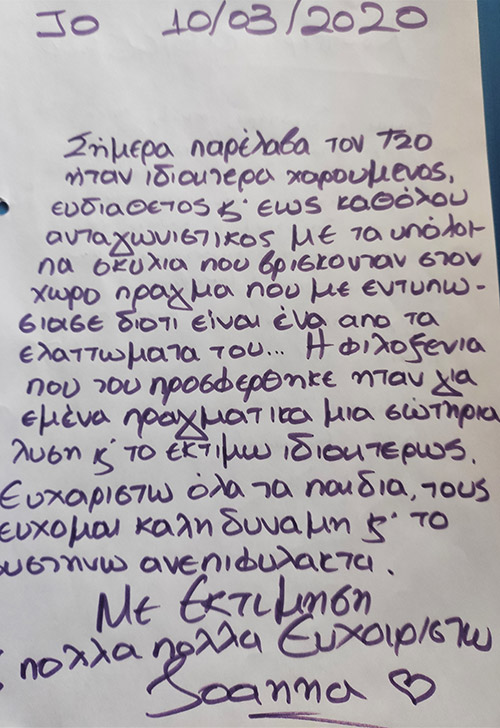 JO 10/03/2020
Σήμερα παρέλαβα τον Τζο
ήταν ιδιαιτερα χαρουμενος,
ευδιαθετος κ' εως καθόλου
ανταγωνιστικος με τα υπόλοι-
πα σκυλια που βρισκονταν στον
χωρο πραγμα που με εντυπω-
σιασε διοτι είναι ένα απο τα
ελαττωματα του... Η φιλοξενια
που του προσφερθηκε ηταν για
εμένα πραγματικα μια σωτηρια
λυση κ' το εκτιμω ιδιαιτερως.
Ευχαριστω όλα τα παιδια, τους
ευχομαι καλη δυναμη κ' το
συστηνω ανεπιφυλακτα.
Με Εκτιμηση
πολλα πολλα Ευχαριστω
Joanna ♡